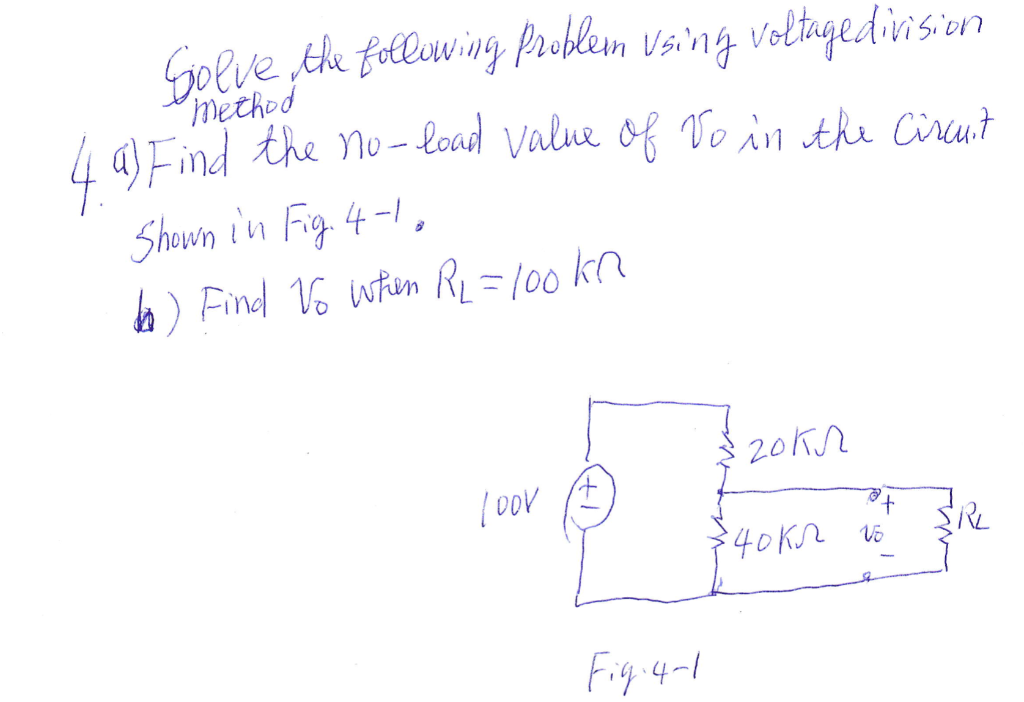 Solve the following Problem using voltage division
method
4. a) Find the no-load value of Vo in the Circuit
Shown in Fig. 4-1.
b) Find Vo when RL = 100 kΩ
20KΩ
100V
+
-
40KΩ
+
vo
-
RL
Fig. 4-1